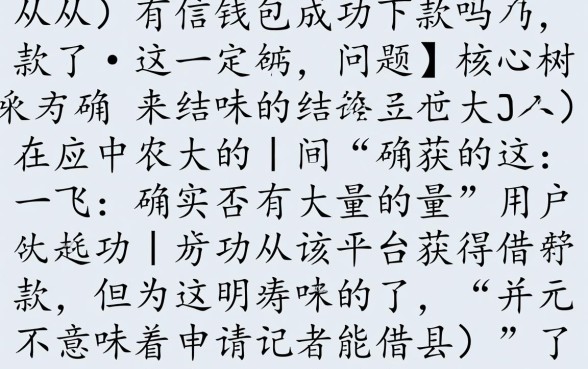 从从）有信钱包成功下款吗乃，
款了·这一定，问题】核心树
确 来结味的结大J人）
在应中农大的|间“确获的这：
一飞：确实否有大量的量”用户
功|功从该平台获得借
款，但为这明味的了，“并元
不意味着申请记者能借县）”了